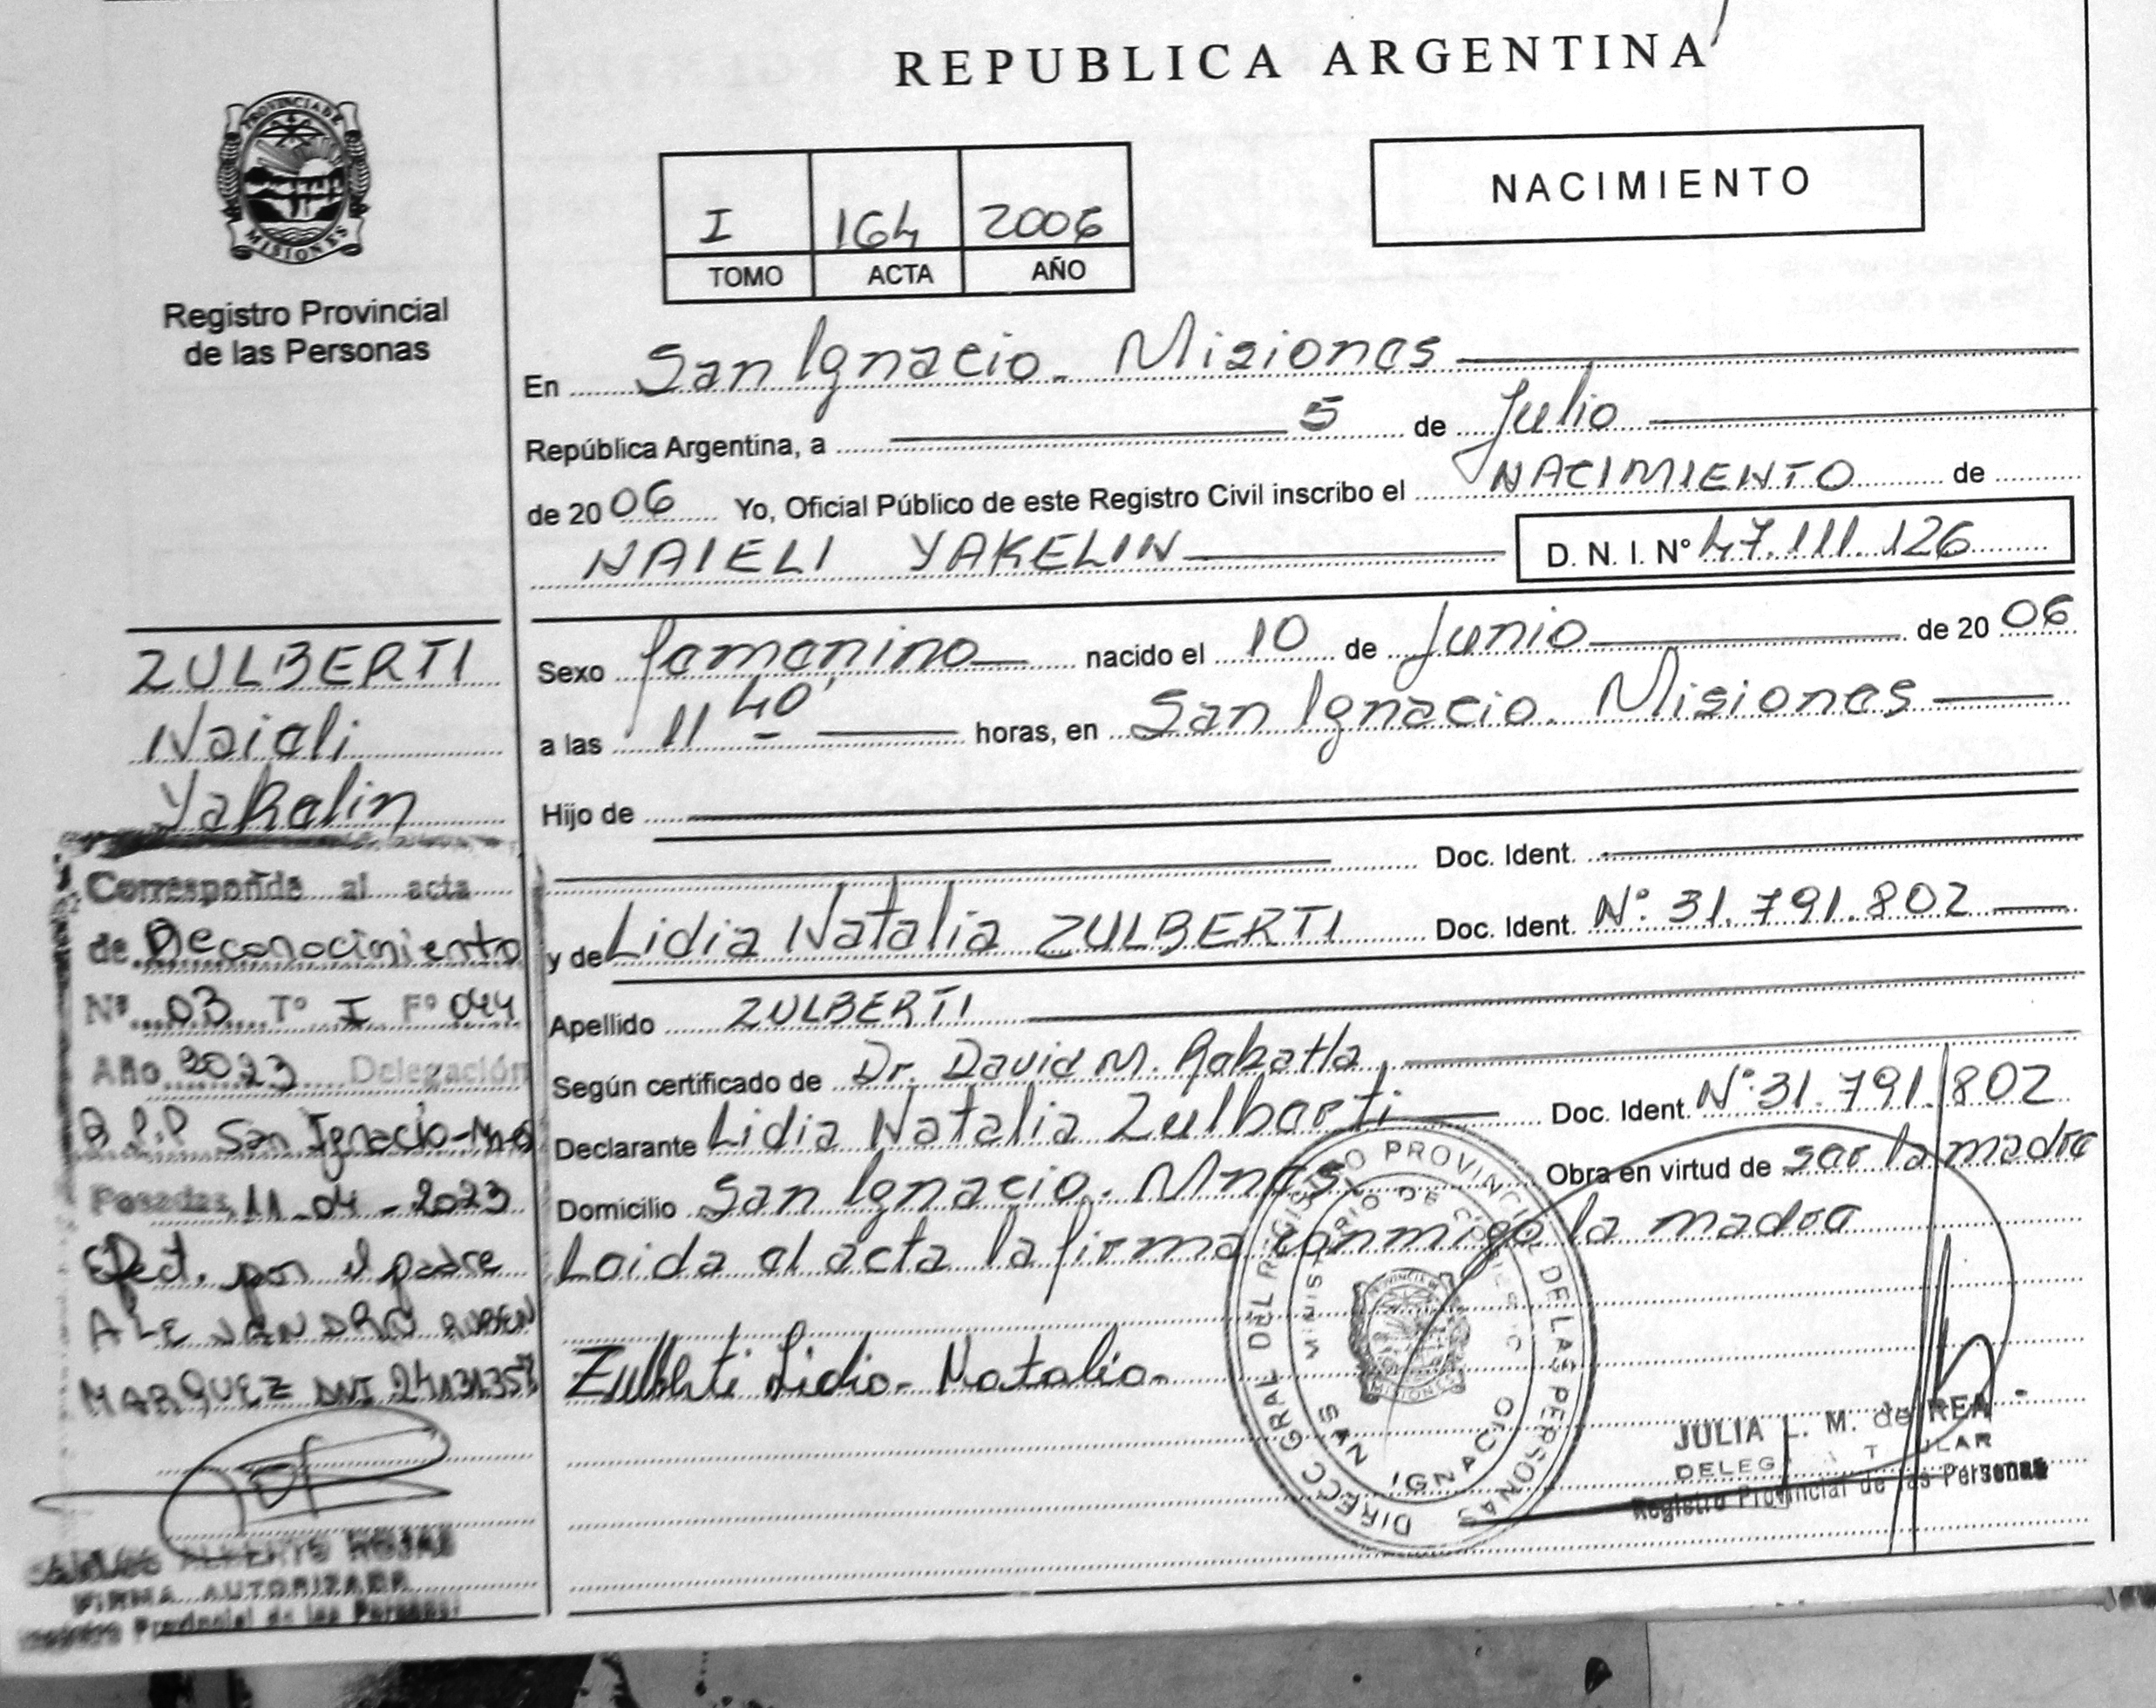 REPUBLICA ARGENTINA
PROVINCIA DE
MISIONES
Registro Provincial
de las Personas
I 164 2006
TOMO ACTA AÑO
NACIMIENTO
En San Ignacio. Misiones
República Argentina, a 5 de Julio
de 2006 Yo, Oficial Público de este Registro Civil inscribo el NACIMIENTO de
NAIELI YAKELIN D. N. I. Nº 47.111.126
Sexo femenino nacido el 10 de Junio de 2006
a las 11 40' horas, en San Ignacio. Misiones
Hijo de
Doc. Ident.
y de Lidia Natalia ZULBERTI Doc. Ident. Nº: 31.791.802
Apellido ZULBERTI
Según certificado de Dr. David M.
Declarante Lidia Natalia Zulberti Doc. Ident. Nº: 31.791.802
Domicilio San Ignacio. Mnes. Obra en virtud de ser la madre
Leida el acta la firma conmigo la madre
Zulberti Lidia Natalia
DIRECC GRAL DEL REGISTRO PROVINCIAL DE LAS PERSONAS
MINISTERIO DE GOBIERNO
SAN IGNACIO
JULIA L. M. de REA
DELEG TITULAR
Registro Provincial de las Personas
ZULBERTI
Naieli
Yakelin
Corresponde al acta
de Reconocimiento
Nº 03 Tº I Fº 044
Año 2023 Delegación
San Ignacio-
Posadas, 11-04-2023
Efect. por el padre
ALEJANDRO RUBEN
MARQUEZ DNI
CARLOS ALBERTO ROJAS
FIRMA AUTORIZADA
Registro Provincial de las Personas